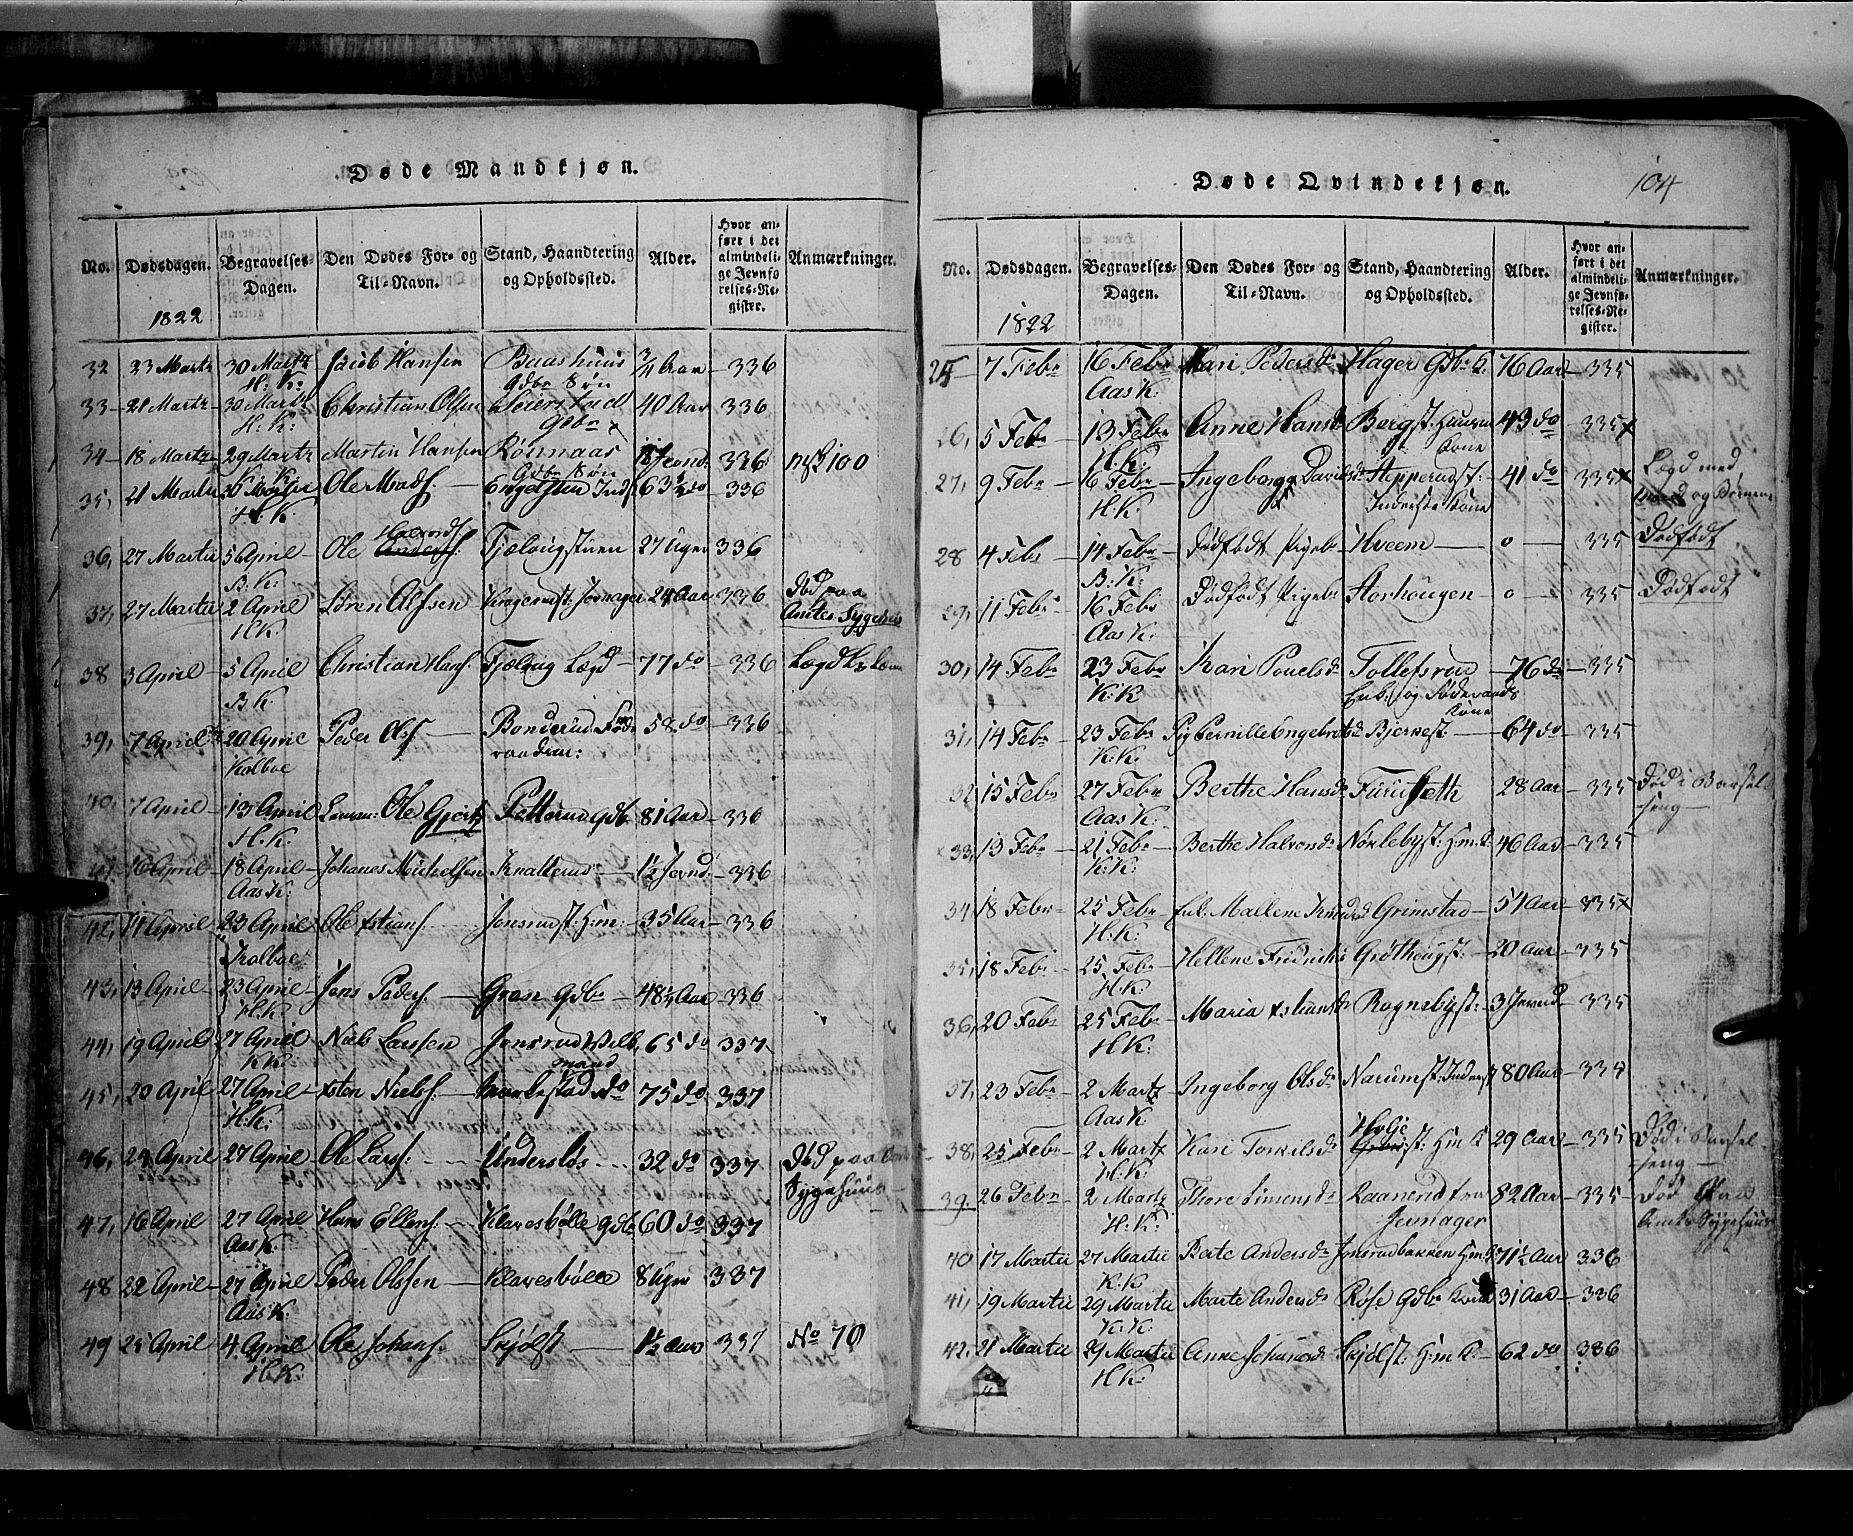 Døde Mandkjøn.
No. Dødsdagen. Begravelses-Dagen. Den Dødes For- og Til-Navn. Stand, Haandtering og Opholdssted. Alder. Hvor anført i det almindelige Jevnførelses-Register. Anmærkninger.
1822
32 23 Marts 30 Marts H: K: Jacob Hansen Baashuus Gdbr Søn 3/4 Aar 336
33 21 Marts 30 Marts H: K: Christian Olsen Seierstad Gdbr 40 Aar 336
34 18 Marts 29 Marts K. K. Martin Hansen Rönnaas Gdbr Søn 336 100
35, 21 Martii 30 Martii H: K Ole Mads. Engelstun Inds 63 1/2 do 336
36, 27 Martii 5 April B: K: Ole Halvords. Fjælougstuen 27 Uger 336
37, 27 Martii 2 April H K: Søren Olssen Jevnager 24 Aar 336 Død paa Amtes Sygehus
38 3 April 5 April B K Christian Hans. Fjælvig Lægd 77 do 336 Lægd
39, 7 April 20 April Kolboe Peder Ols. Bonderud 58 do 336
40, 7 April 13 April H: K: Ole Gjerts Petterud Gdbr 81 Aar 336
41 16 April 18 April Aas K: Johanes Michelsen Knatterud 1 1/2 336
42, 14 April 23 April Kolboe Ole Xstians. Jonsrudst. H:m: 35 Aar 336
43, 13 April 23 April H: K: Jens Peders. Gran Gdbr 48 1/2 Aar 336
44, 19 April 27 April K K: Niels Larsen Jonsrud mand 65 do 337
45, 20 April 27 April H: K: Xsten Niels. do 75 do 337
46, 23 April 27 April Ole Lars. Undersløs 32 do 337 Død paa Sygehuus
47, 16 April 27 April Aas K: Hans Ellens. Klaresbølle Gdb 60 do 337
48 22 April 27 April Aas K: Peder Olssen Klaresbølle 8 Uger 337
49 25 April 4 April H. K: Ole Johans. Skjølst 1 1/2 Aar 337 No 70
Døde Qvindekjøn.
104
No. Dødsdagen. Begravelses-Dagen. Den Dødes For- og Til-Navn. Stand, Haandtering og Opholdssted. Alder. Hvor anført i det almindelige Jevnførelses-Register. Anmærkninger.
1822
25 7 Febr 16 Febr Aas K: Mari Pedersdr Hager Gdbr K: 76 Aar 335
26, 5 Febr 13 Febr H: K: Anne Hansd Bergst: Huusm Kone 49 do 335
27, 9 Febr 16 Febr H: K: Ingeborg Davidsd Stepperudst: Inderste Kone 41 do 335 Lægd med
28 4 Febr 14 Febr B: K: Dödfödt Pigeb Hveem 0 335 Dödfödt
29, 11 Febr 16 Febr Aas K: Dödfödt Pigeb Storhougen 0 335 Dödfödt
30, 14 Febr 23 Febr K: K: Kari Pouelsd Tollefsrud Enk. og Föderaads Kone 76 do 335
31, 14 Febr 23 Febr K: K: Pig Pernille Engebretsd Bjernest 64 do 335
32 15 Febr 27 Febr Aas K: Berthe Hansd Furuseth 28 Aar 335 Død i Barselseng
33, 13 Febr 21 Febr K: K: Berthe Halvorsd Nörlebyst: H:m: K 46 Aar 335
34 18 Febr 25 Febr H: K: Enk: Mallene Grimstad 51 Aar 335
35, 18 Febr 25 Febr H: K: Hellene Fredriks Gröthougst: 20 Aar 335
36, 20 Febr 25 Febr H K: Maria Xstiansd Rognebyst: 335
37, 23 Febr 2 Martz Aas K: Ingeborg Olsd Narumst: Inderst 80 Aar 334
38, 25 Febr 2 Martz H: K: Kari Torkilsd Helje H:m K 29 Aar 335 Död i Barselseng
39. 26 Febr 2 Martz H: K: Thore Simensd fra Jevnager 82 Aar 335 Död Amts Sygehuus
40 17 Martii 27 Martii K: K Berte Andersd Jonsrudbakken H:m: 71 1/2 Aar 336
41, 19 Martii 29 Martii K: K: Marte Andersd Röse Gdbr Kone 31 Aar 336
42, 21 Martii 29 Martii H K: Anne Johansd Skjølst: H:m K: 62 do 336